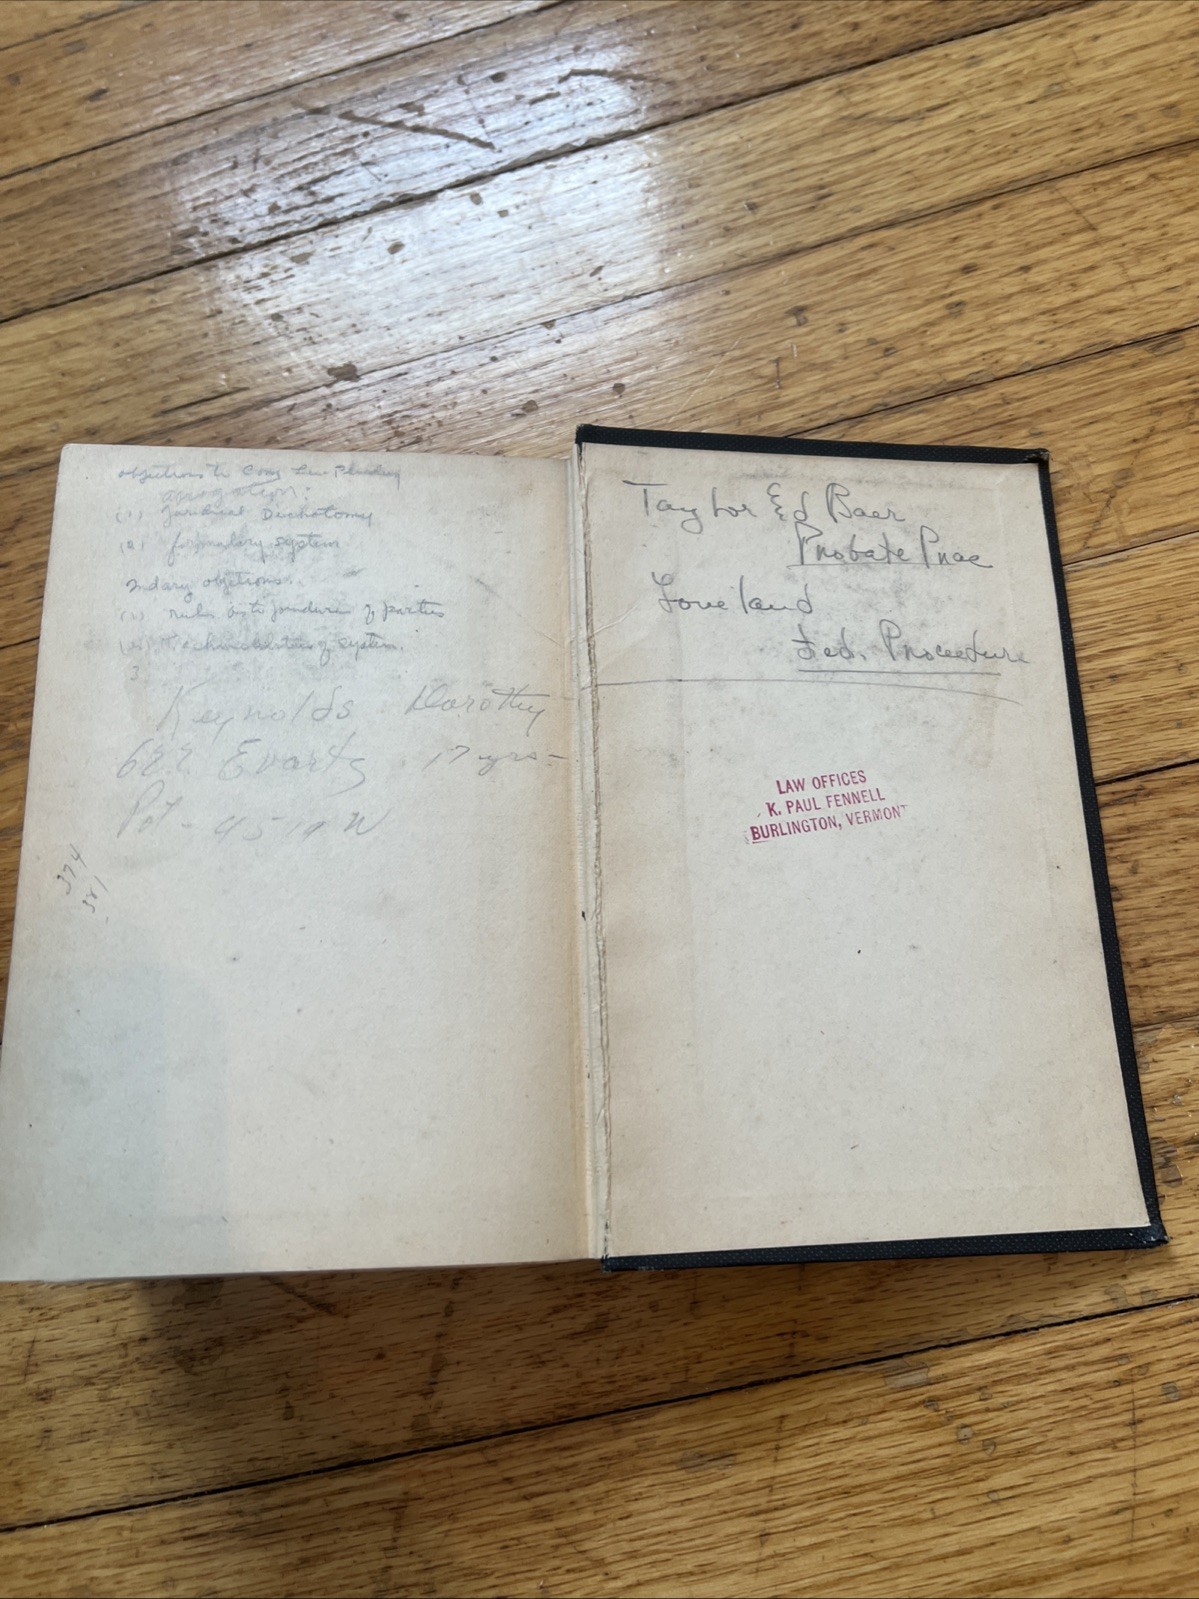 objections to Com Law Pleading
(1) Juridical Dichotomy
(2) formulary system
2ndary objections.
(1) rules as to joinder of parties
(2) Technicalities of system.
3
Reynolds Dorothy
622 Evarts 17 yrs-
374
381
Taylor Ed Baer
Probate Prac
Loveland
Fed. Procedure
LAW OFFICES
K. PAUL FENNELL
BURLINGTON, VERMONT